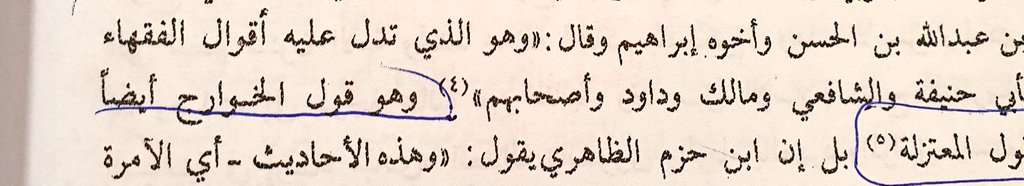 بن عبدالله بن الحسن وأخوه إبراهيم وقال: «وهو الذي تدل عليه أقوال الفقهاء
كأبي حنيفة والشافعي ومالك وداود وأصحابهم»(٤) وهو قول الخوارج أيضاً
المعتزلة(٥) بل إن ابن حزم الظاهري يقول: «وهذه الأحاديث - أي الآمرة